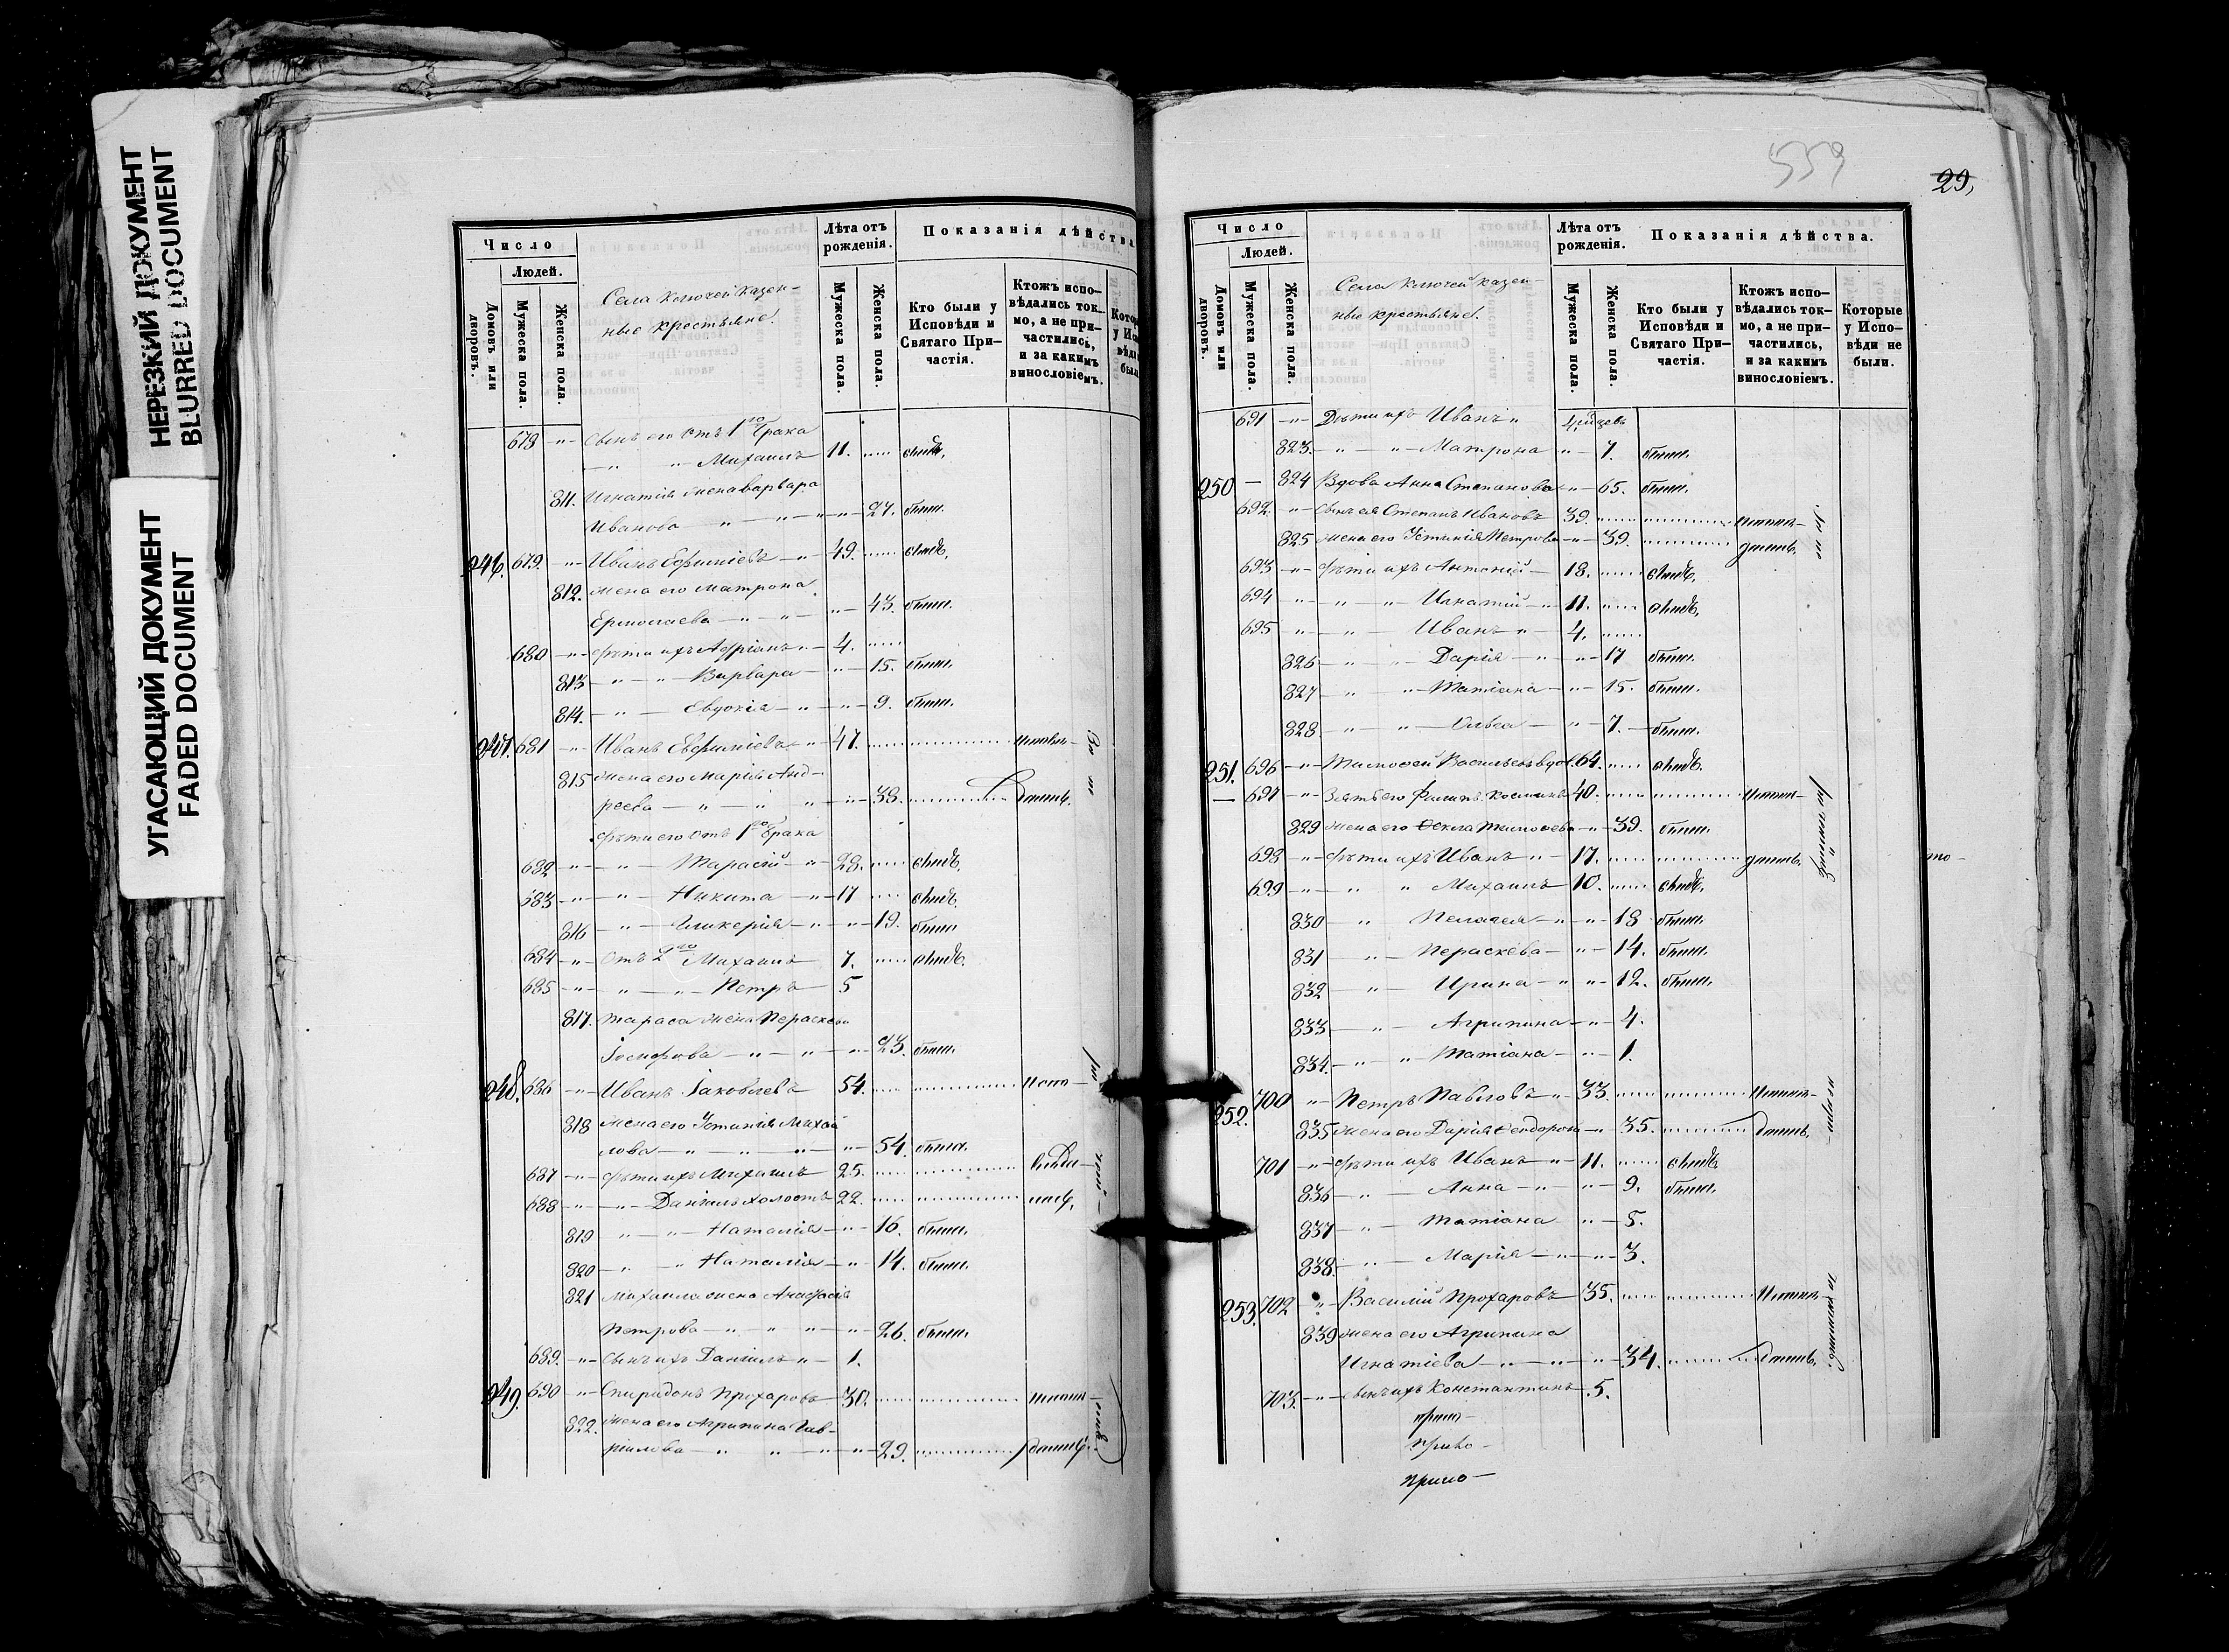 НЕРЕЗКИЙ ДОКУМЕНТ
BLURRED DOCUMENT
УГАСАЮЩИЙ ДОКУМЕНТ
FADED DOCUMENT
Число
Людей.
Домовъ или дворовъ.
Мужеска пола.
Женска пола.
Села Ключей казен-
ные крестьяне.
Лѣта отъ рожденія.
Мужеска пола.
Женска пола.
Показанія дѣйства
Кто были у Исповѣди и Святаго При-частія.
Ктожъ испо-вѣдались ток-мо, а не при-частились, и за какимъ винословіемъ.
678 сынъ его отъ 1го брака
Михаилъ 11.
811. Игнатія жена Варвара
Иванова 27. были.
246. 679. Иванъ Ефиміевъ 49.
812. жена его Матрона
Ермолаева 43. были.
680 дѣти ихъ Адріанъ 4.
813 Варвара 15. были.
814. Евдокія 9. были.
247. 681 Иванъ Евфиміевъ 47.
815 жена его Марія Анд-
реева 38.
дѣти его отъ 1го брака
682 Тарасій 23.
683 Никита 17
816 Гликерія 19. были
684 отъ 2го Михаилъ 7.
685 Петръ 5
817. Тараса жена Параскева
Іосифова 23. были.
248. 686 Иванъ Іаковлевъ 54.
818 жена его Устинія Михай
лова 54. были.
687 дѣти ихъ Михаилъ 25.
688 Даніилъ холостъ 22.
819 Наталія 16. были.
820 Наталія 14. были.
821 Михаила жена Анастасія
Петрова 26. были.
689. сынъ ихъ Даніилъ 1.
249. 690 Спиридонъ Прохаровъ 30.
822. жена его Агрипина Гав-
ріилова 29.
559
29,
Число
Людей.
Домовъ или дворовъ.
Мужеска пола.
Женска пола.
Села Ключей казен-
ные крестьяне.
Лѣта отъ рожденія.
Мужеска пола.
Женска пола.
Показанія дѣйства.
Кто были у Исповѣди и Святаго При-частія.
Ктожъ испо-вѣдались ток-мо, а не при-частились, и за какимъ винословіемъ.
Которые у Испо-вѣди не были.
691 Дѣти ихъ Иванъ 4.
823. Матрона 7. были.
250 824 Вдова Анна Степанова 65. были.
692. Сынъ ея Степанъ Ивановъ 39.
825 жена его Устинія Петрова 39.
693 дѣти ихъ Антоній 18.
694 Игнатій 11.
695 Иванъ 4.
826 Дарія 17 были.
827 Татіана 15. были.
828. Ольга 7. были.
251. 696 Тимофей Васильевъ вдов. 64.
697 Зять его Филипъ Косминъ 40.
829 жена его Ѳекла Тимофеева 39. были.
698 дѣти ихъ Иванъ 17.
699 Михаилъ 10.
830 Пелагея 18 были.
831 Пераскева 14. были.
832 Ирина 12. были.
833 Агрипина 4.
834. Татіана 1.
252. 700 Петръ Павловъ 33.
835 жена его Дарія Ѳеодорова 35.
701 дѣти ихъ Иванъ 11.
836 Анна 9. были.
837 Татіана 5.
838. Марія 3.
253. 702 Василій Прохаровъ 35.
839 жена его Агрипина
Игнатіева 34.
703. сынъ ихъ Константинъ 5.